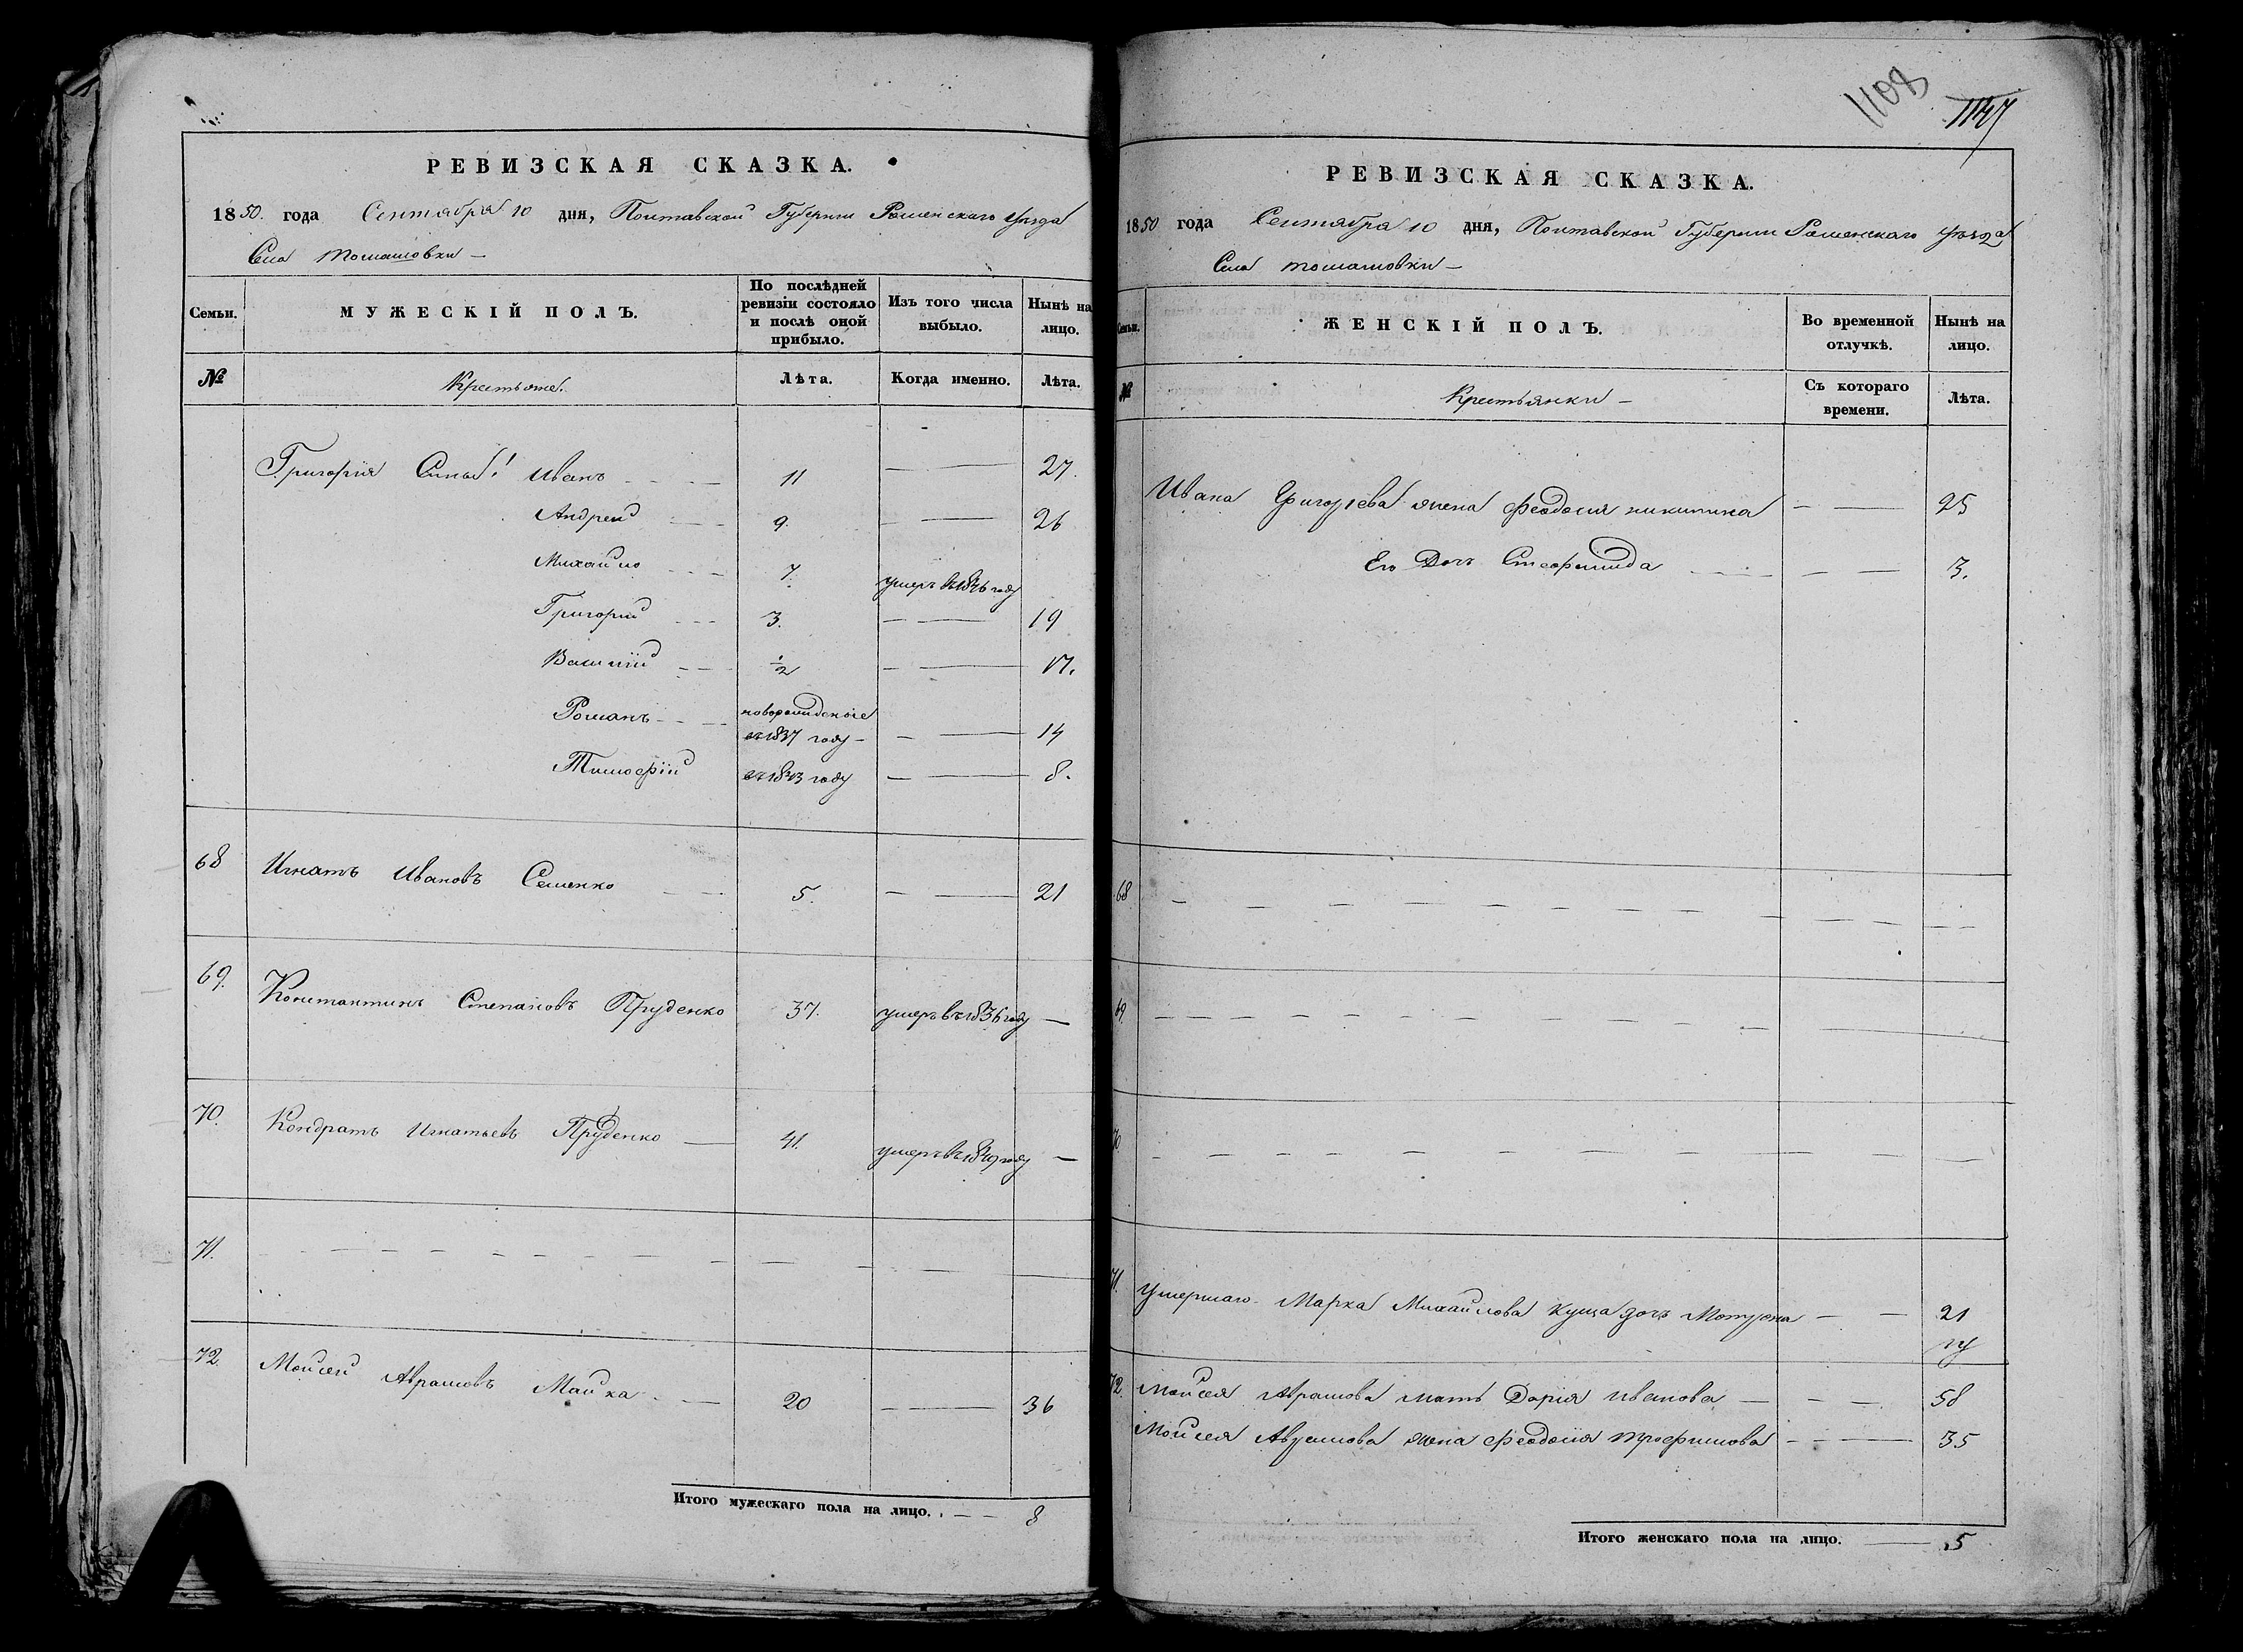 РЕВИЗСКАЯ СКАЗКА.
1850. года Сентября 10 дня, Полтавской Губернии Роменскаго Уезда
Села Томашовки —
Семьи.
МУЖЕСКІЙ ПОЛЪ.
По послѣдней ревизіи состояло и послѣ оной прибыло.
Изъ того числа выбыло.
Нынѣ на лицо.
№
Крестьяне.
Лѣта.
Когда именно.
Лѣта.
Григорія Сыны! Иванъ 11 — 27.
Андрей 9. — 26
Михайло 7. умеръ въ 1846 году
Григорій 3. — 19
Василій 1/2 — 17.
Романъ новорожденные
въ 1837 году — 14
Тимофій въ 1843 году — 8.
68 Игнатъ Ивановъ Семенко 5. — 21
69. Константинъ Степановъ Пруденко 37. умеръ въ 1836 году —
70. Кондратъ Игнатьевъ Пруденко — 41. умеръ въ 1849 году —
71. — — —
72. Мойсей Аврамовъ Майка — 20 — 36
Итого мужескаго пола на лицо. — — 8
1108
1147
РЕВИЗСКАЯ СКАЗКА.
1850 года Сентября 10 дня, Полтавской Губернии Роменскаго Уезда
Села Томашовки —
Семьи.
ЖЕНСКІЙ ПОЛЪ.
Во временной отлучкѣ.
Нынѣ на лицо.
№
Крестьянки —
Съ котораго времени.
Лѣта.
Ивана Григорьева жена Феодосия Никитина — 25
Его Дочъ Стефанида — 3.
68. — — —
69. — — —
70. — — —
71. Умершаго Марка Михайлова Куща дочъ Мотрона — 21
72. Мойсея Аврамова мать Дарія Иванова — 58
Мойсея Аврамова жена Феодосія Трофимова — 35
Итого женскаго пола на лицо. — 5